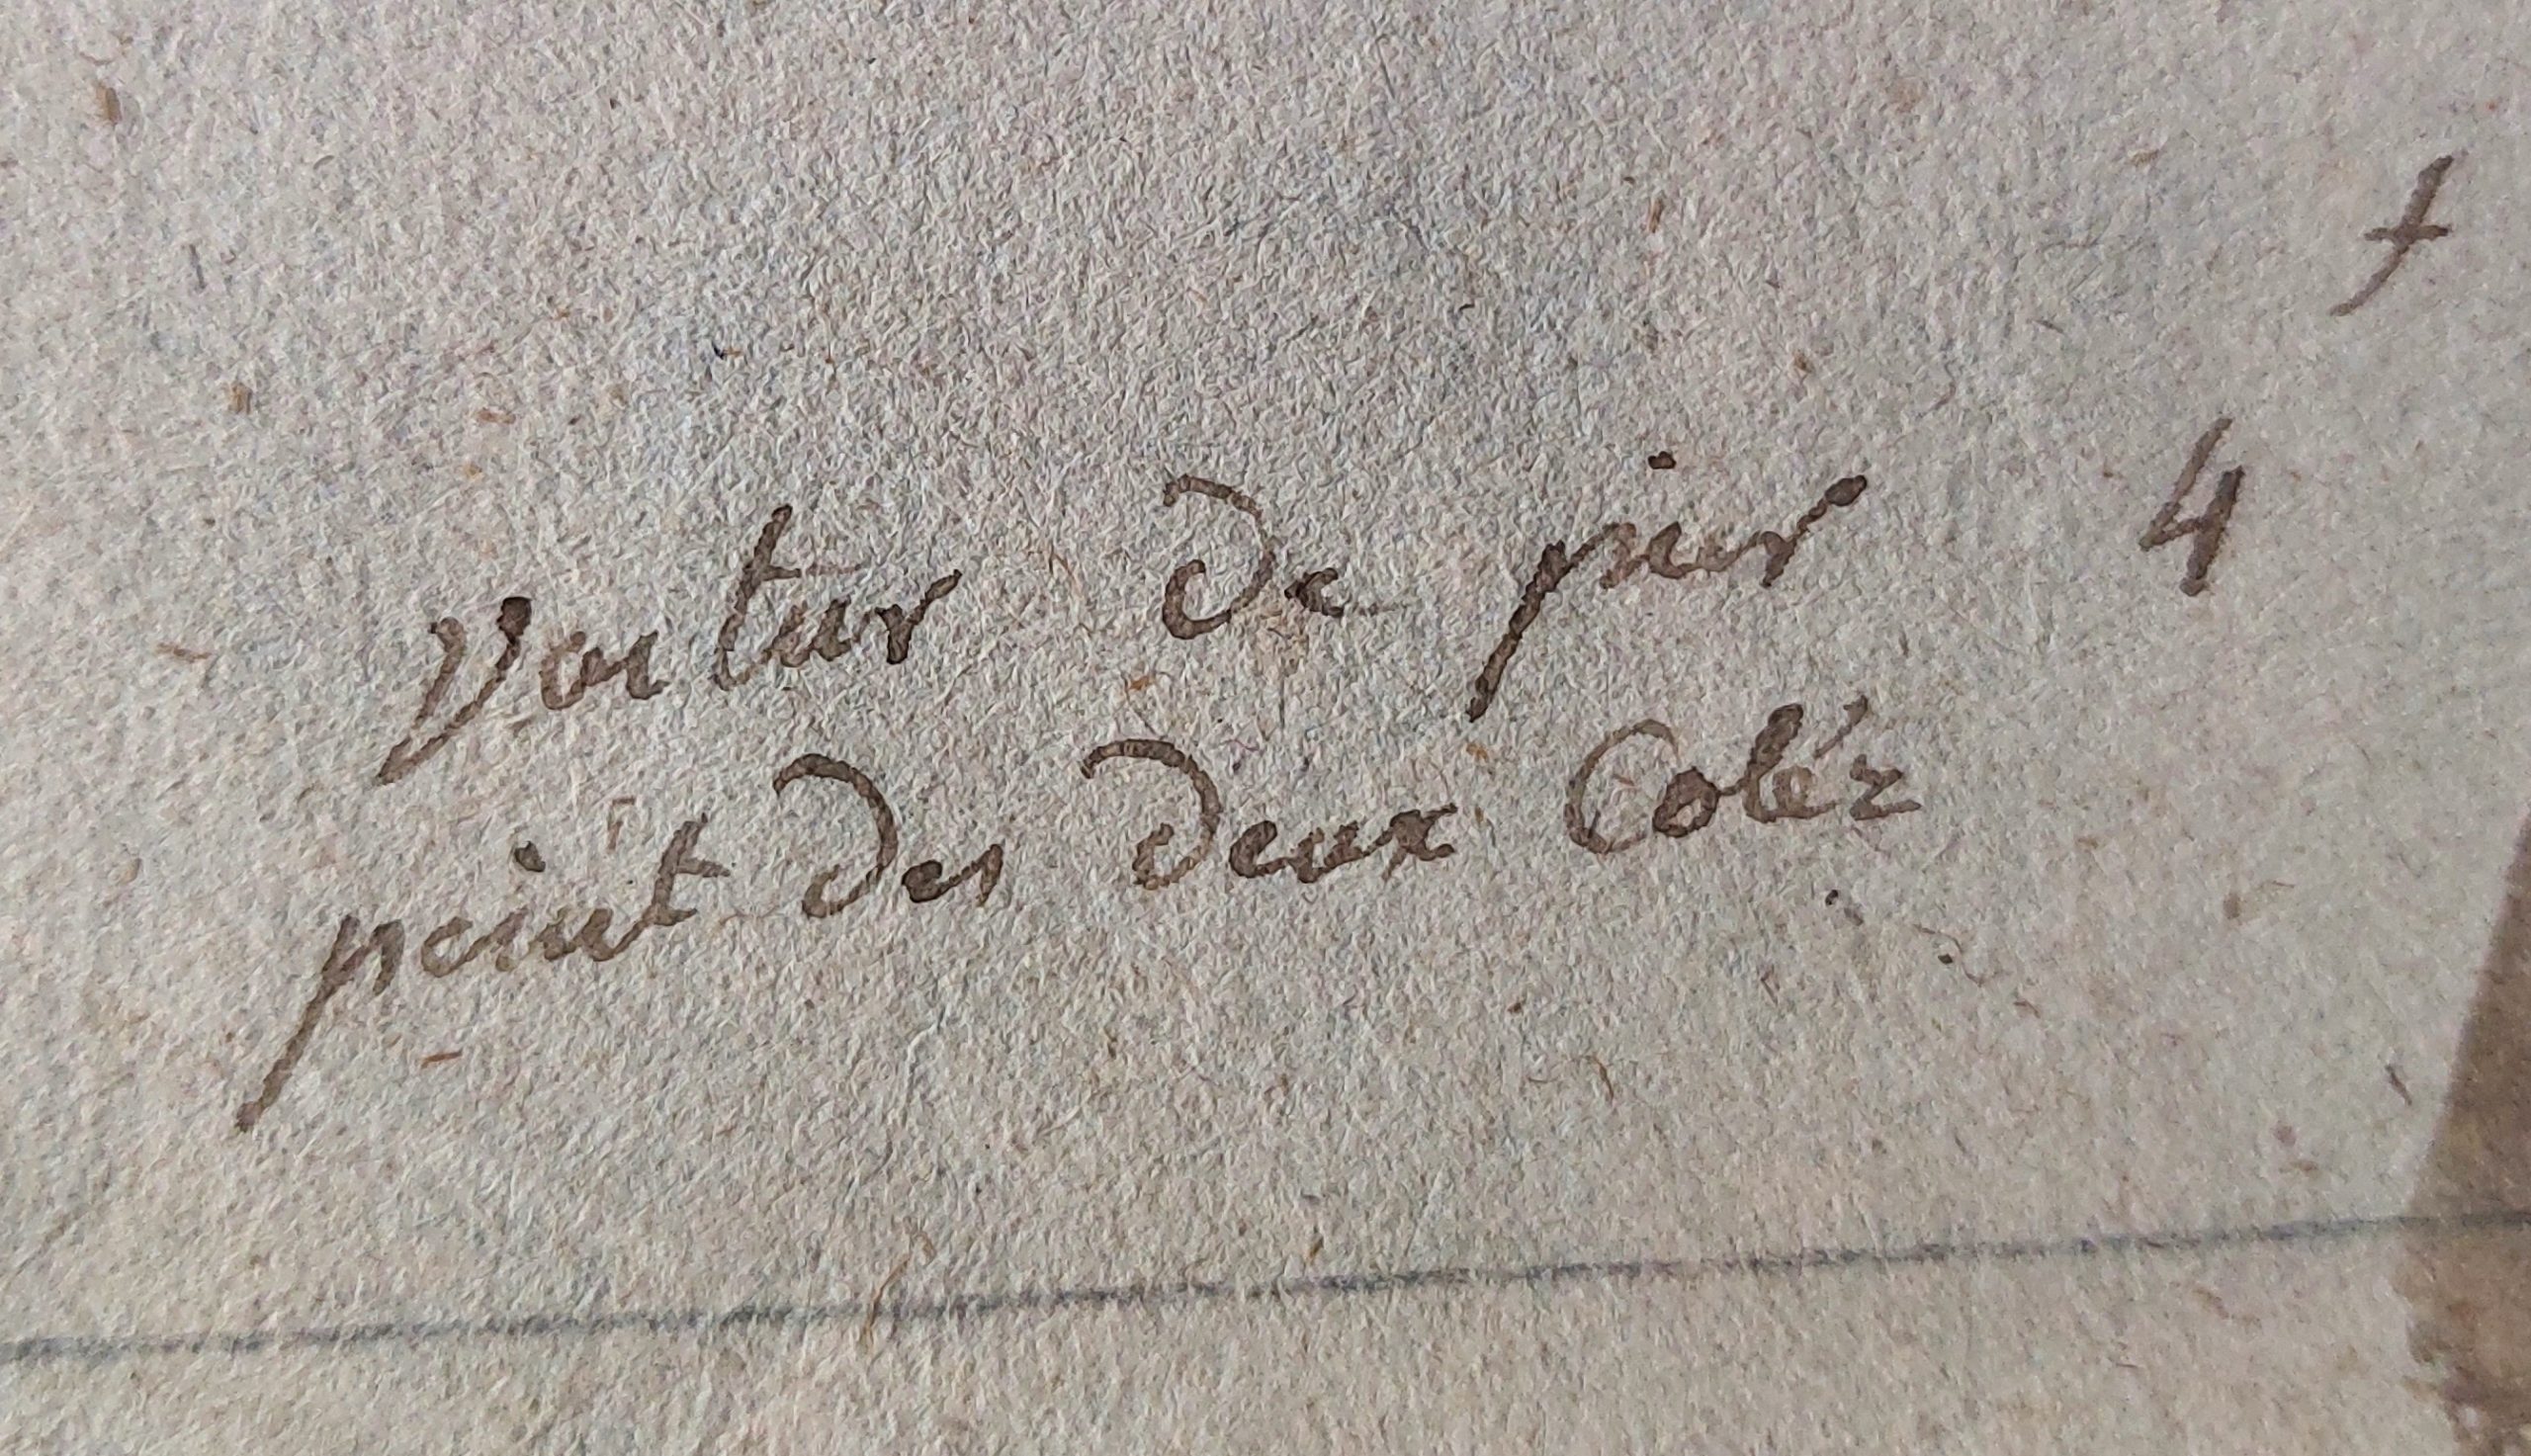 +
4
voitur de pier
peint des deux Coléz